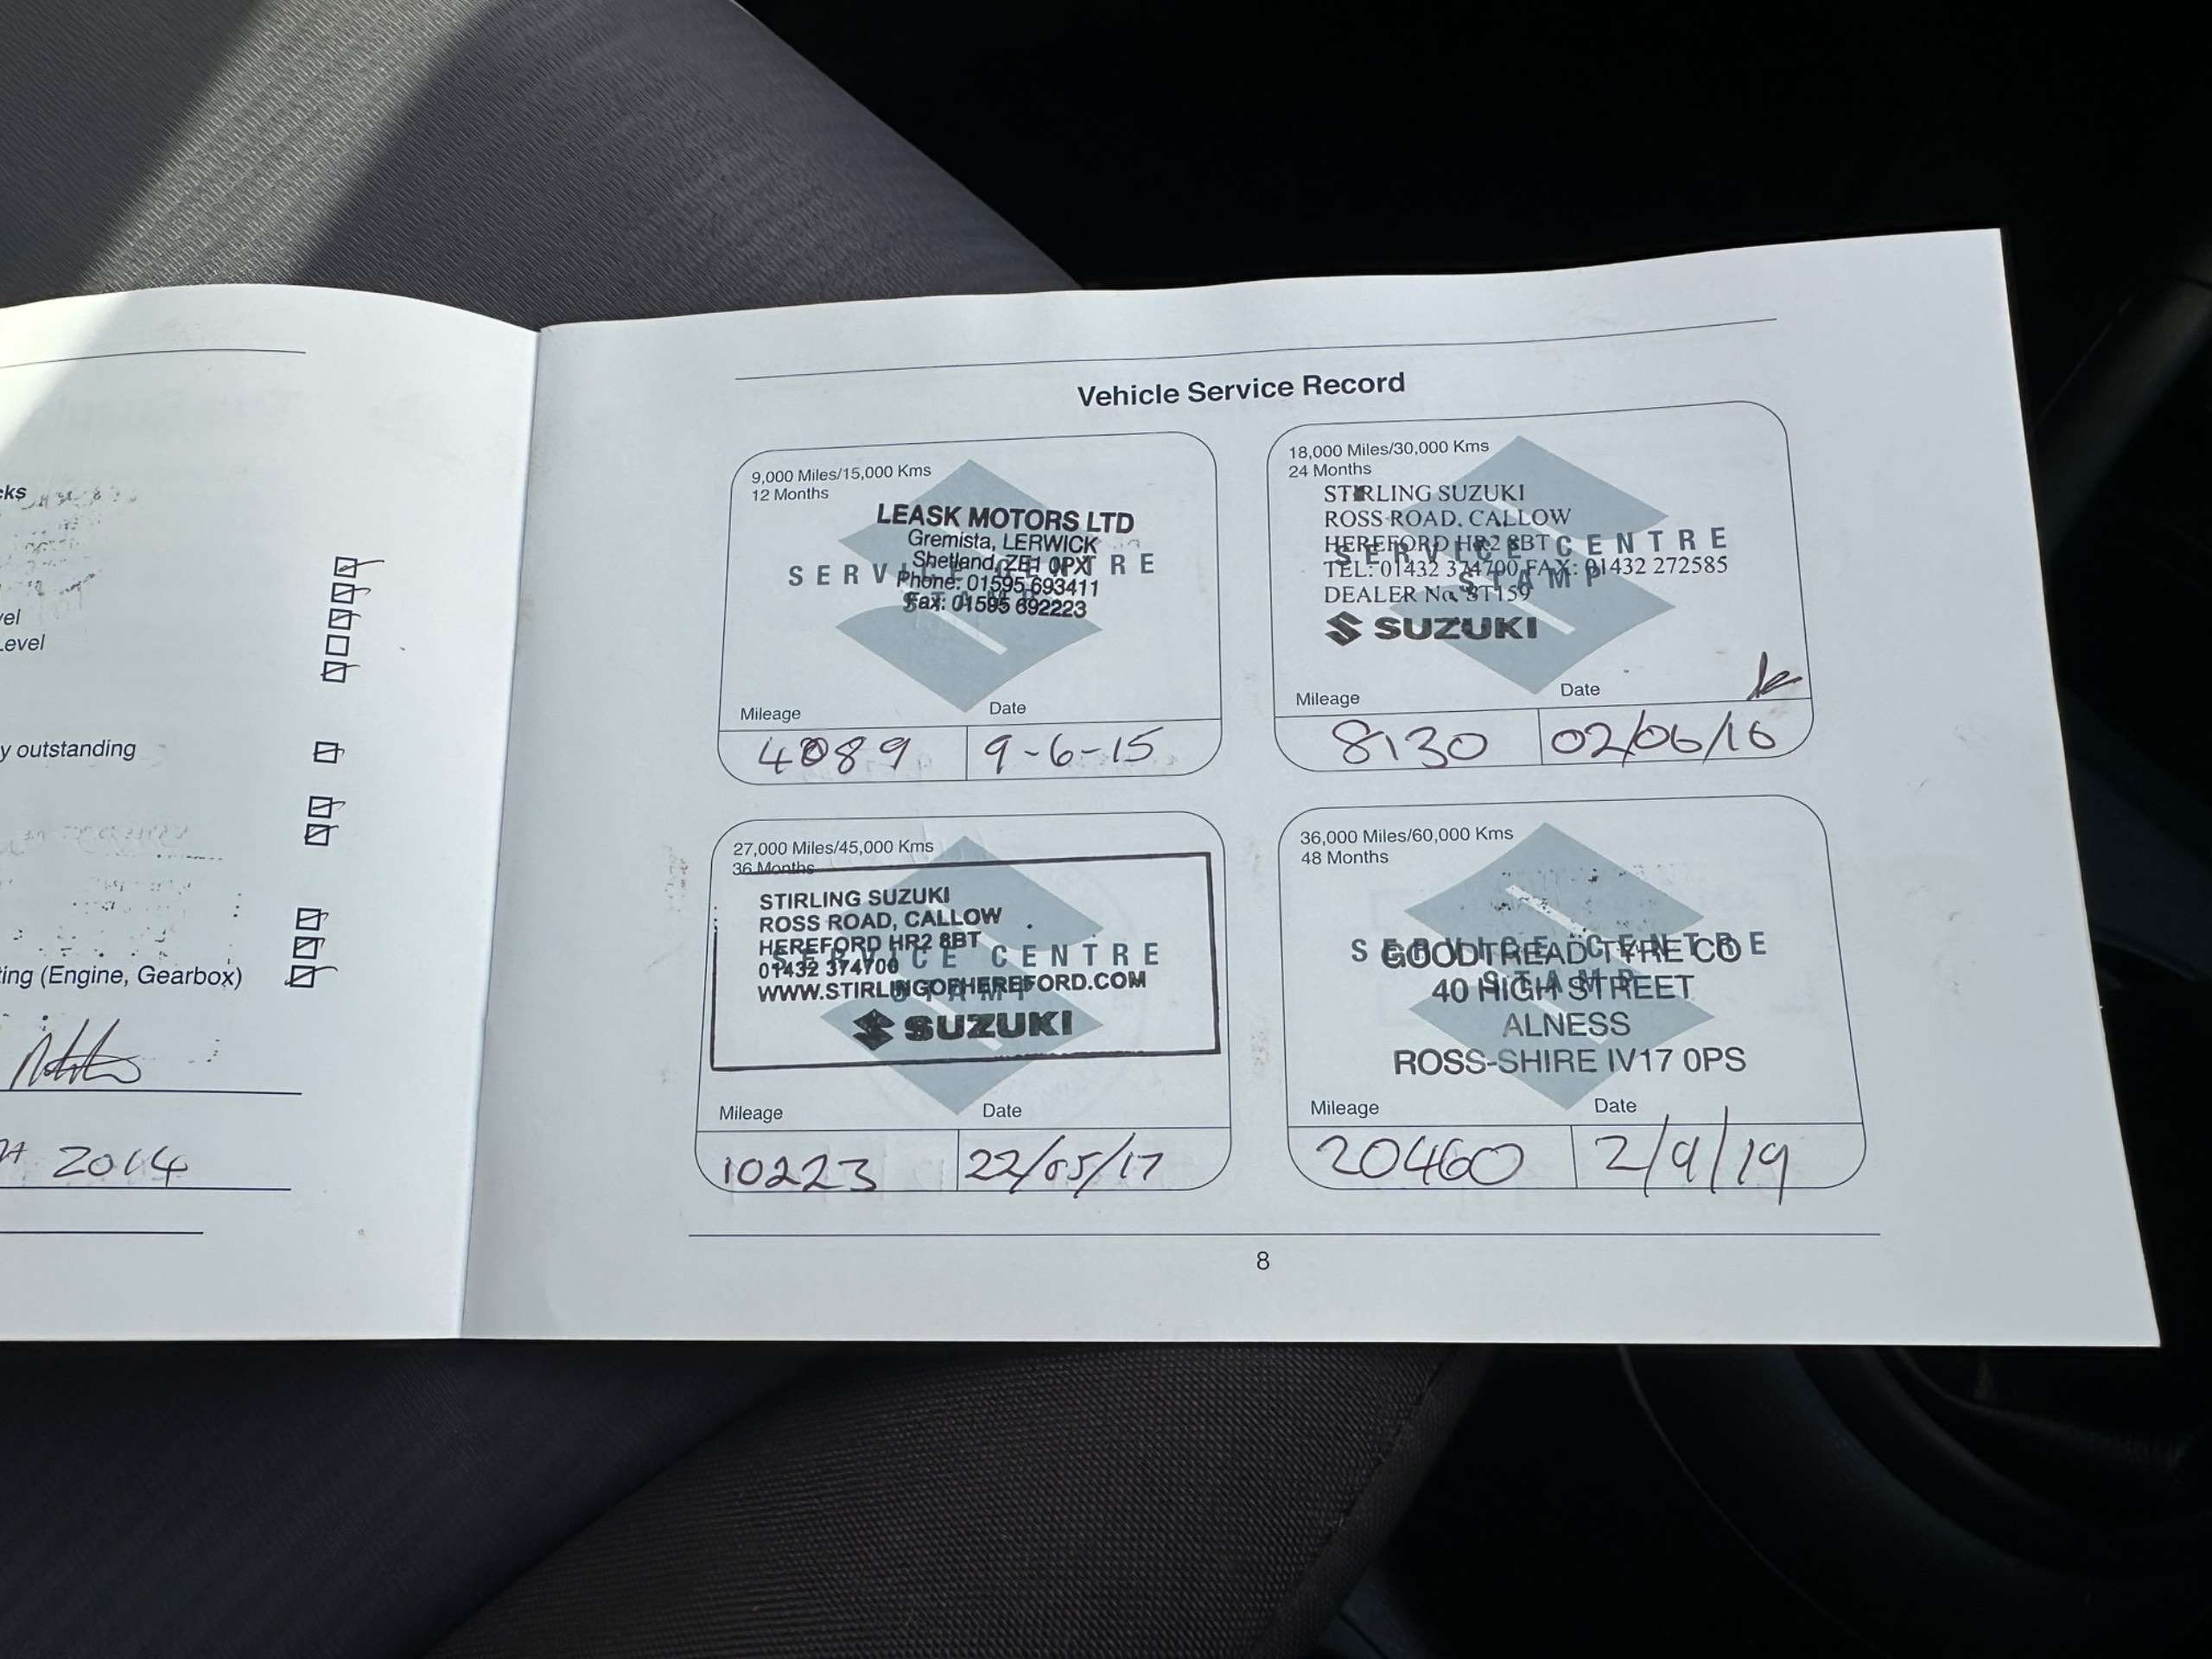 cks
vel
Level
y outstanding
ting (Engine, Gearbox)
2014
Vehicle Service Record
9,000 Miles/15,000 Kms
12 Months
LEASK MOTORS LTD
Gremista, LERWICK
Shetland, ZE1 0PX
Phone: 01595 693411
Fax: 01595 692223
SERVICE CENTRE
STAMP
Mileage
Date
4089
9-6-15
18,000 Miles/30,000 Kms
24 Months
STIRLING SUZUKI
ROSS ROAD, CALLOW
HEREFORD HR2 8BT
TEL: 01432 374700 FAX: 01432 272585
DEALER No. ST159
SUZUKI
SERVICE CENTRE
STAMP
Mileage
Date
8130
02/06/16
27,000 Miles/45,000 Kms
36 Months
STIRLING SUZUKI
ROSS ROAD, CALLOW
HEREFORD HR2 8BT
01432 374700
WWW.STIRLINGOFHEREFORD.COM
SUZUKI
SERVICE CENTRE
STAMP
Mileage
Date
10223
22/05/17
36,000 Miles/60,000 Kms
48 Months
GOODTREAD TYRE CO
40 HIGH STREET
ALNESS
ROSS-SHIRE IV17 0PS
SERVICE CENTRE
STAMP
Mileage
Date
20460
2/9/19
8